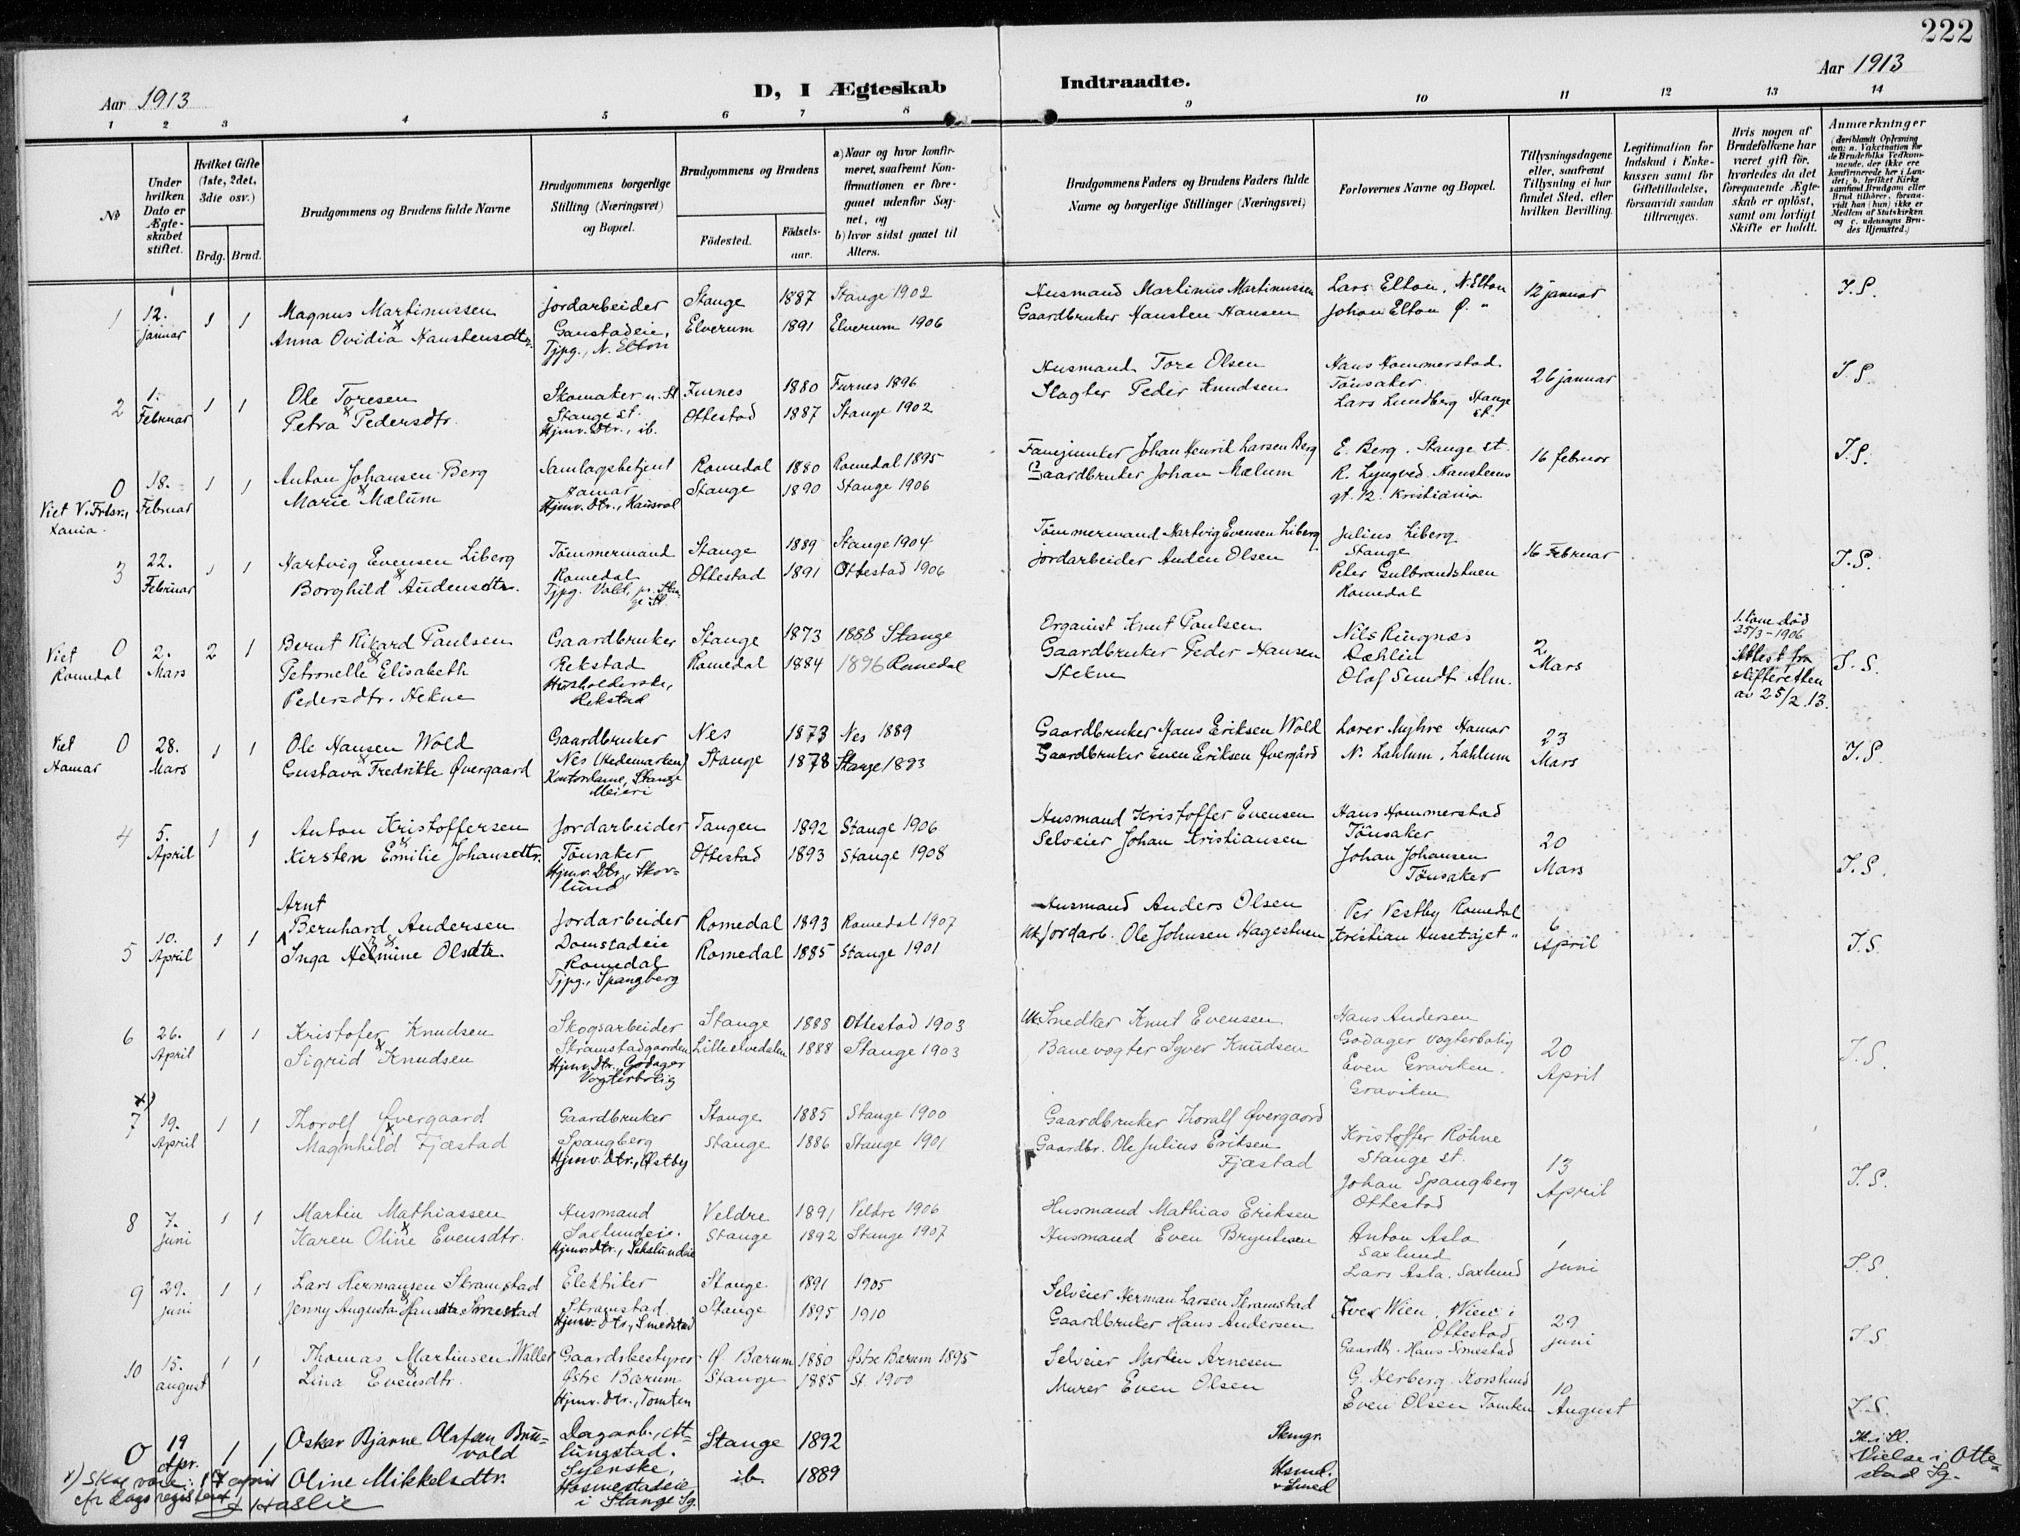 222
Aar 1913
D, I Ægteskab Indtraadte.
Aar 1913
1 2 3 4 5 6 7 8 9 10 11 12 13 14
No
Under hvilken Dato er Ægteskabet stiftet.
Hvilket Gifte (1ste, 2det, 3die osv.)
Brdg. Brud.
Brudgommens og Brudens fulde Navne
Brudgommens borgerlige Stilling (Næringsvei) og Bopæl.
Brudgommens og Brudens
Födested.
Födselsaar.
a) Naar og hvor konfirmeret, saafremt Konfirmationen er foregaaet udenfor Sognet, og
b) hvor sidst gaaet til Alters.
Brudgommens Faders og Brudens Faders fulde Navne og borgerlige Stillinger (Næringsvei)
Forlovernes Navne og Bopæl.
Tillysningsdagene eller, saafremt Tillysning ei har fundet Sted, efter hvilken Bevilling.
Legitimation for Indskud i Enkekassen samt for Giftetilladelse, forsaavidt saadan tiltrænges.
Hvis nogen af Brudefolkene har været gift för, hvorledes da det foregaaende Ægteskab er oplöst, samt om lovligt Skifte er holdt.
Anmærkninger
1 12. januar 1 1 Magnus Martinussen Jordarbeider Stange 1887 Stange 1902 Husmand Martinus Martinussen Lars Elton, N. Elton 12 januar I.S.
Anna Ovidia Hanstensdtr. Ganstadeie, Elverum 1891 Elverum 1906 Gaardbruker Hansten Hansen Johan Elton Ø. "
Tjpg., N. Elton
2 1. Februar 1 1 Ole Toresen Skomaker Furnes 1880 Furnes 1896 Husmand Tore Olsen Hans Hommerstad 26 januar I.S.
Petra Pedersdtr. Stange st. Ottestad 1887 Stange 1902 Slagter Peder Knudsen Tönsaker
Hjmv. Dtr., ib. Lars Lundberg Stange st.
0 18. Februar 1 1 Anton Johansen Berg Samlagsbetjent Romedal 1880 Romedal 1895 Fanejunker Johan Henrik Larsen Berg E. Berg. Stange st. 16 februar I.S.
Viet V. Frlsr., Marie Mælum Hamar Stange 1890 Stange 1906 Gaardbruker Johan Mælum R. Lyngved. Hansteens
Xania. Hjmv. Dtr., gt. 12. Kristiania
3 22. Februar 1 1 Hartvig Evensen Liberg Tömmermand Stange 1889 Stange 1904 Tömmermand Hartvig Evensen Liberg Julius Liberg 16 Februar I.S.
Borghild Audensdtr. Romedal Ottestad 1891 Ottestad 1906 Jordarbeider Auden Olsen Stange
Tjpg. Vold, pr. Stange St. Peter Gulbrandstuen
Romedal
Viet Romedal 0 2. Mars 2 1 Bernt Rikard Paulsen Gaardbruker Stange 1873 1888 Stange Organist Knut Paulsen Nils Ringnæs 2 Mars 1. kone död 25/3-1906 I.S.
Petronelle Elisabeth Rekstad Romedal 1884 1896 Romedal Gaardbruker Peder Hansen Dæhlin Attest fra
Pedersdtr. Hekne Husholderske, Rekstad Hekne Olaf Semdt Alm. skifteretten av 25/2.13.
Viet Hamar 0 28. Mars 1 1 Ole Hansen Wold Gaardbruker Nes 1873 Nes 1889 Gaardbruker Hans Eriksen Wold Lover Myhre Hamar 23 Mars I.S.
Gustava Fredrikke Øvergaard Nes (Hedemarken) Stange 1878 Stange 1893 Gaardbruker Even Eriksen Øvergård N. Lahlum, Lahlum
Kontordame, Stange Meieri
4 5. April 1 1 Anton Kristoffersen Jordarbeider Tangen 1892 Stange 1906 Husmand Kristoffer Evensen Hans Hommerstad 20 Mars I.S.
Kirsten Emilie Johansdtr. Tönsaker Ottestad 1893 Stange 1908 Selveier Johan Kristiansen Tönsaker
Hjmv. Dtr., Skovlund Johan Johansen
Tönsaker
Arnt
5 10. April 1 1 Bernhard Andersen Jordarbeider Romedal 1893 Romedal 1907 Husmand Anders Olsen Per Vestby Romedal 6 April I.S.
Inga Helmine Olsdtr. Domstadeie Romedal 1885 Stange 1901 Jordarb. Ole Johnsen Hagestuen Kristian Husetajet "
Romedal
Tjpg., Spangberg
6 26. April 1 1 Kristofer Knudsen Skogsarbeider Stange 1888 Ottestad 1903 Snedker Knut Evensen Hans Andersen 20 April I.S.
Sigrid Knudsen Skramstadgaarden Lilleelvedalen 1888 Stange 1903 Banevogter Syver Knudsen Godager vogterbolig
Hjmv. Dtr., Godager Vogterbolig Even Graviken.
Graviken
x)
7 19. April 1 1 Thorolf Øvergaard Gaardbruker Stange 1885 Stange 1900 Gaardbruker Thoralf Øvergaard Kristoffer Röhne 13 April I.S.
Magnhild Fjæstad Spangberg Stange 1886 Stange 1901 Gaardbr. Ole Julius Eriksen Fjæstad Stange st.
Hjmv. Dtr., Østby Johan Spangberg
Ottestad
8 7. juni 1 1 Martin Mathiassen Husmand Veldre 1891 Veldre 1906 Husmand Mathias Eriksen Anton Asla 1 juni I.S.
Karen Oline Evensdtr. Saxlundeie. Stange 1892 Stange 1907 Husmand Even Bryntesen Saxlund
Hjmv. Dtr., Sakslundeie Lars Asla. Saxlund
9 29. juni 1 1 Lars Hermansen Skramstad Elektriker Stange 1891 1905 Selveier Herman Larsen Skramstad Iver Wien, Wien i 29 juni I.S.
Jenny Augusta Hansdtr. Smestad Skramstad Stange 1895 1910 Gaardbruker Hans Andersen Ottestad
Hjmv. Dtr., Smedstad Gaardb. Hans Smestad
10 15. august 1 1 Thomas Martinsen Waller Gaardsbestyrer Ø. Bærum 1880 Østre Bærum 1895 Selveier Martin Arnesen G. Herberg. Korslund 10 August I.S.
Lina Evensdtr. Østre Bærum Stange 1885 St. 1900 Murer Even Olsen Even Olsen Tomten
Hjmv. Dtr., Tomten
0 19 Apr. 1 1 Oskar Bjarne Olafsen Bruvold Dagarb., Stange 1892 Skmgr.
Oline Mikkelsdtr. Syerske, ib 1889 Hsmd. Smed
Hosmestadeie i Stange Sg. Vielse i Ottestad Sg.
x) Skal være: 17 april
cfr dagsregisteret
Haslie